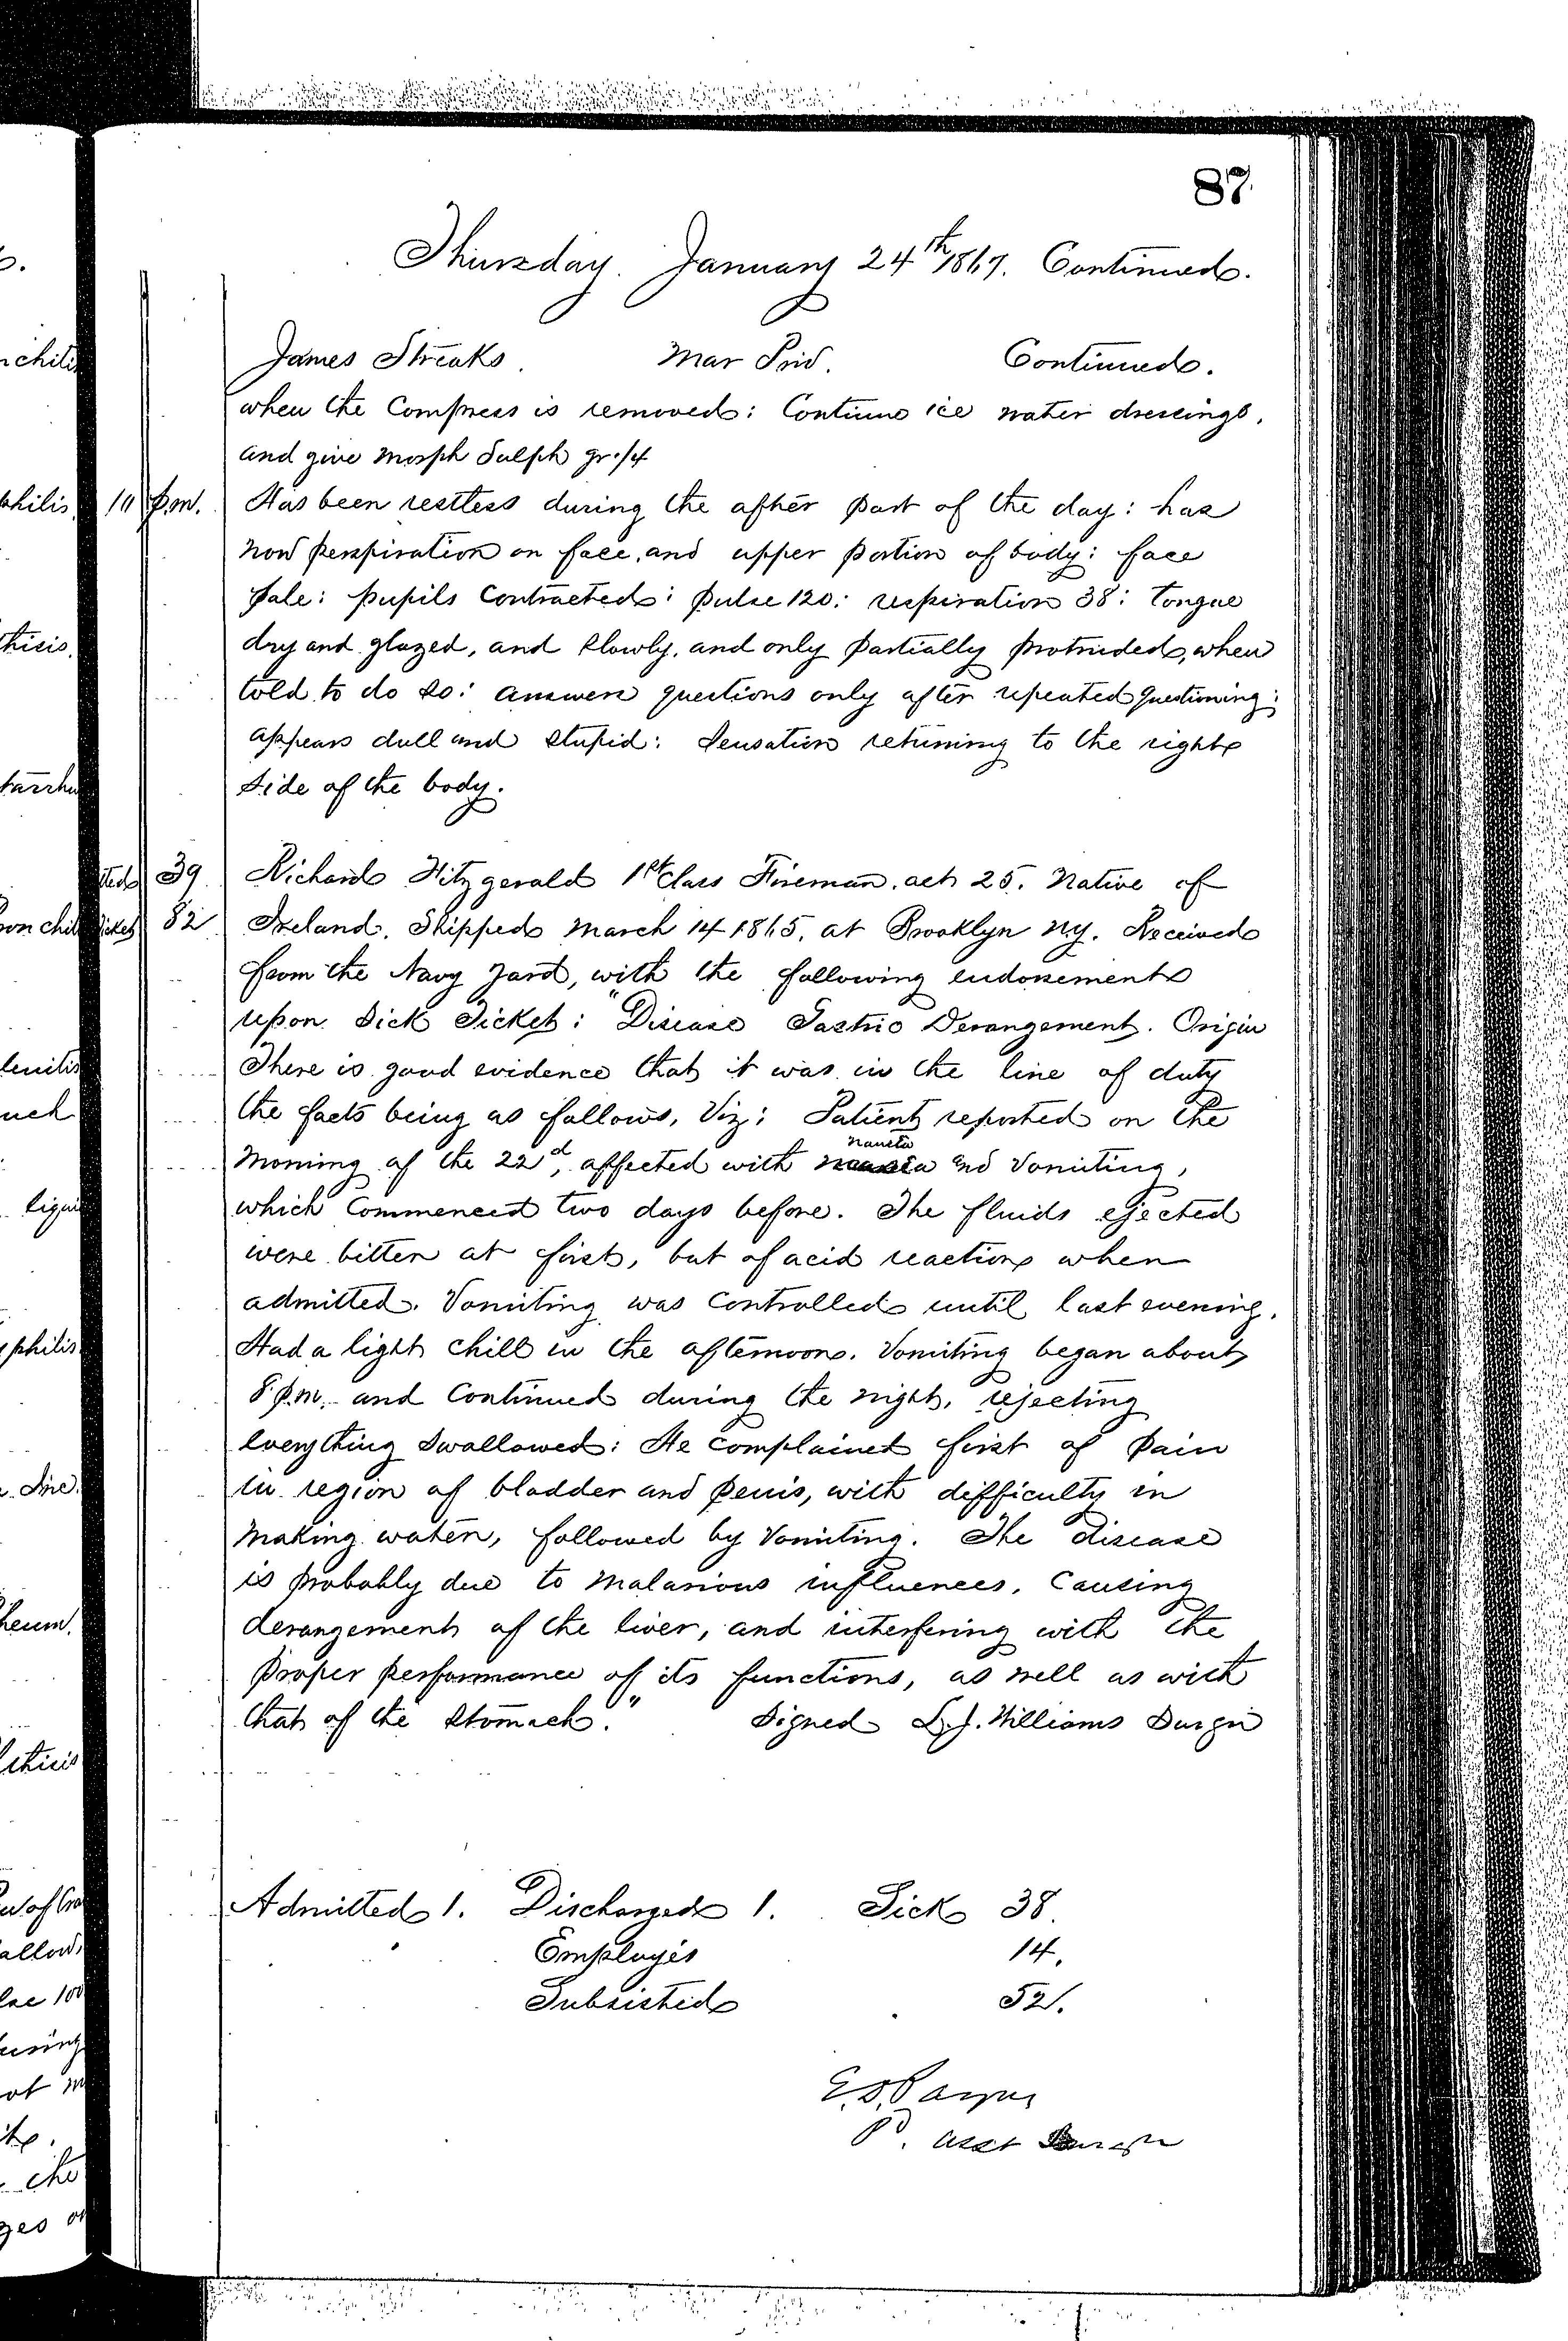 87
Thursday. January 24th 1867. Continued.
James Streaks. Mar Priv. Continued.
when the Compress is removed: Continue ice water dressings,
and give Morph Sulph gr 1/4
10 p.m. Has been restless during the after part of the day: has
now perspiration on face, and upper portion of body: face
pale: pupils Contracted: pulse 120: respiration 38: tongue
dry and glazed, and slowly, and only partially protruded, when
told to do so: answers questions only after repeated questioning:
appears dull and stupid: Sensation returning to the right
side of the body.
39 Richard Fitzgerald 1st Class Fireman, aet 25. Native of
82 Ireland. Shipped March 14 1865, at Brooklyn NY. Received
from the Navy Yard, with the following endorsement
upon Sick Ticket: "Disease Gastric Derangement. Origin
There is good evidence that it was in the line of duty
the facts being as follows, Viz: Patient reported on the
morning of the 22d, affected with nausea and Vomiting,
which Commenced two days before. The fluids ejected
were bitter at first, but of acid reaction when
admitted. Vomiting was Controlled until last evening.
Had a light chill in the afternoon. Vomiting began about
8 p.m. and Continued during the night, rejecting
everything swallowed: He complained first of pain
in region of bladder and penis, with difficulty in
making water, followed by Vomiting. The disease
is probably due to Malarious influences, Causing
derangement of the liver, and interfering with the
proper performance of its functions, as well as with
that of the stomach." Signed L.J. Williams Surgn
Admitted 1. Discharged 1. Sick 38.
Employés 14.
Subsisted 52.
E.D. Payne
P. Asst Surgn